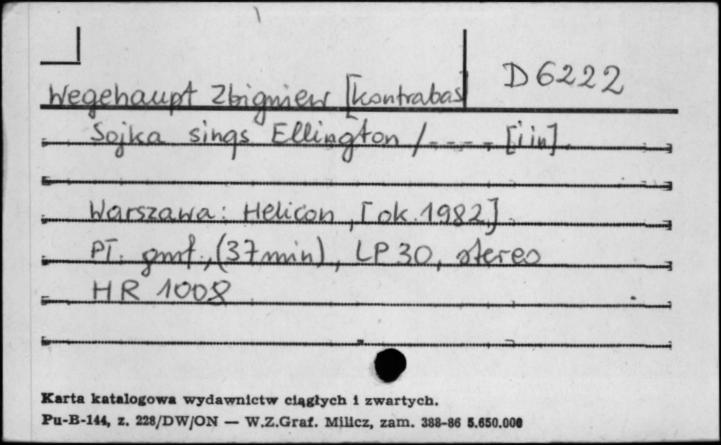 D 6222
Wegehaupt Zbigniew [kontrabas]
Sojka sings Ellington / - - - - [i in].
Warszawa: Helicon, [ok. 1982]
Pł. gmf., (37 min), LP 30, stereo
HR 1008
Karta katalogowa wydawnictw ciągłych i zwartych.
Pu-B-144, z. 228/DW/ON — W.Z.Graf. Milicz, zam. 388-86 5.650.000